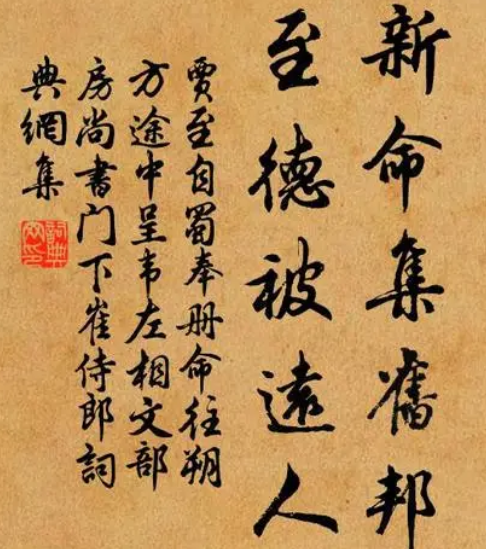 新命集舊邦
至德被遠人
賈至自蜀奉册命往朔
方途中呈韦左相文部
房尚書门下崔侍郎詞
典網集
詞典网印